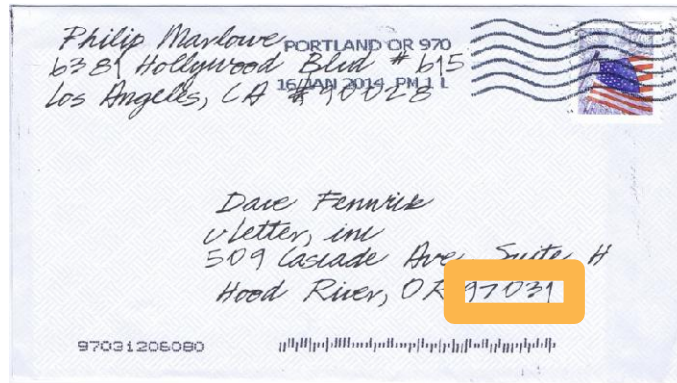 Philip Marlowe
6381 Hollywood Blvd #615
Los Angeles, CA #90028
PORTLAND OR 970
16 JAN 2014 PM 1 L
Dave Fennwick
vLetter, inc
509 Cascade Ave, Suite H
Hood River, OR 97031
97031206080